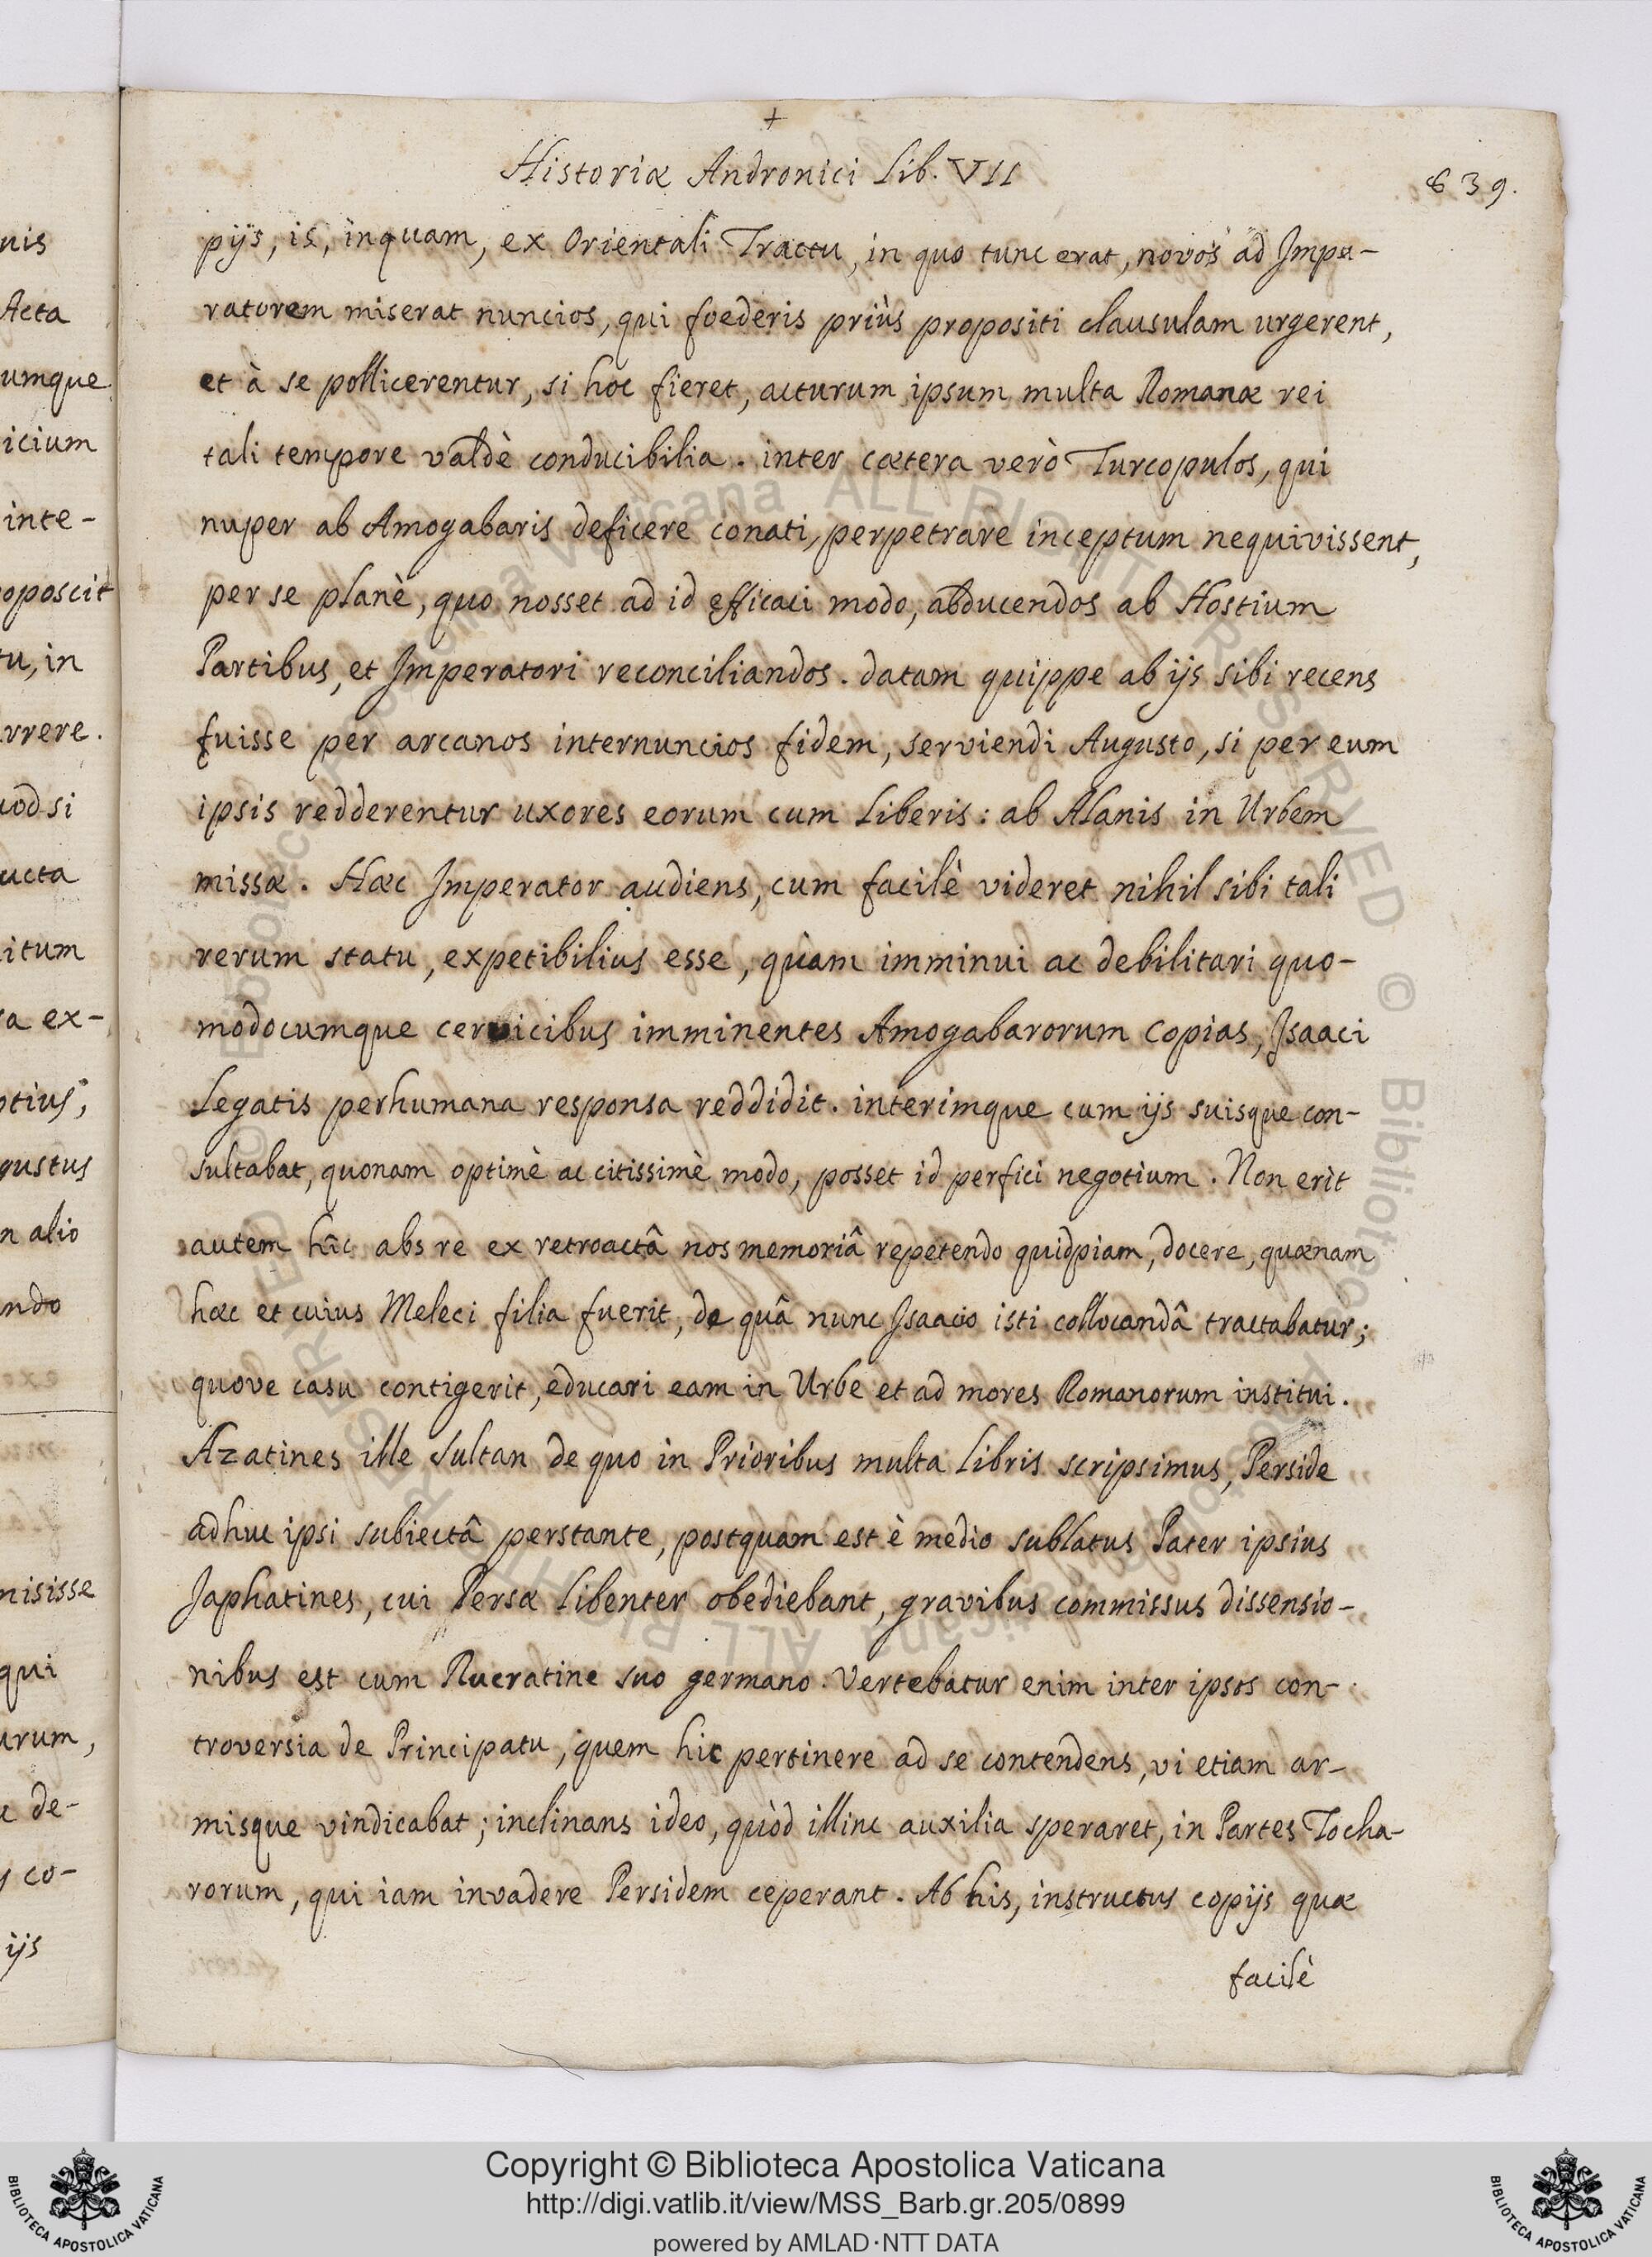 +
Historiæ Andronici Lib. VII
839.
pijs, is, inquam, ex Orientali Tractu, in quo tunc erat, novos ad Impe-
ratorem miserat nuncios, qui foederis priùs propositi clausulam urgerent,
et à se pollicerentur, si hoc fieret, acturum ipsum multa Romanæ rei
tali tempore valdè conducibilia. inter cætera verò Turcopulos, qui
nuper ab Amogabaris deficere conati, perpetrare inceptum nequivissent,
per se planè, quo nosset ad id efficaci modo, abducendos ab Hostium
Partibus, et Imperatori reconciliandos. datam quippe ab ijs sibi recens
fuisse per arcanos internuncios fidem, serviendi Augusto, si per eum
ipsis redderentur uxores eorum cum Liberis: ab Alanis in Urbem
missæ. Hæc Imperator audiens, cum facilè videret nihil sibi tali
rerum statu, expetibilius esse, quàm imminui ac debilitari quo-
modocumque cervicibus imminentes Amogabarorum copias, Isaaci
Legatis perhumana responsa reddidit. interimque cum ijs suisque con-
sultabat, quonam optimè ac citissimè modo, posset id perfici negotium. Non erit
autem hîc abs re ex retroactâ nos memoriâ repetendo quidpiam, docere, quænam
hæc et cuius Meleci filia fuerit, de quâ nunc Isaacio isti collocandâ tractabatur;
quove casu contigerit, educari eam in Urbe et ad mores Romanorum institui.
Azatines ille Sultan de quo in Prioribus multa Libris scripsimus, Perside
adhuc ipsi subiectâ perstante, postquam est è medio sublatus Pater ipsius
Japhatines, cui Persæ Libenter obediebant, gravibus commissus dissensio-
nibus est cum Rucratine suo germano. Vertebatur enim inter ipsos con-
troversia de Principatu, quem hic pertinere ad se contendens, vi etiam ar-
misque vindicabat; inclinans ideo, quòd illinc auxilia speraret, in Partes Tocha-
rorum, qui iam invadere Persidem ceperant. Ab his, instructus copijs quæ
facilè
nis
Acta
umque
icium
inte-
oposcit
tu, in
rrere.
uod si
ucta
itum
ra ex-
otius,
gustus
n alio
ndo
misisse
qui
urum,
de-
co-
ijs
Copyright © Biblioteca Apostolica Vaticana
http://digi.vatlib.it/view/MSS_Barb.gr.205/0899
powered by AMLAD·NTT DATA
BIBLIOTECA APOSTOLICA VATICANA
BIBLIOTECA APOSTOLICA VATICANA